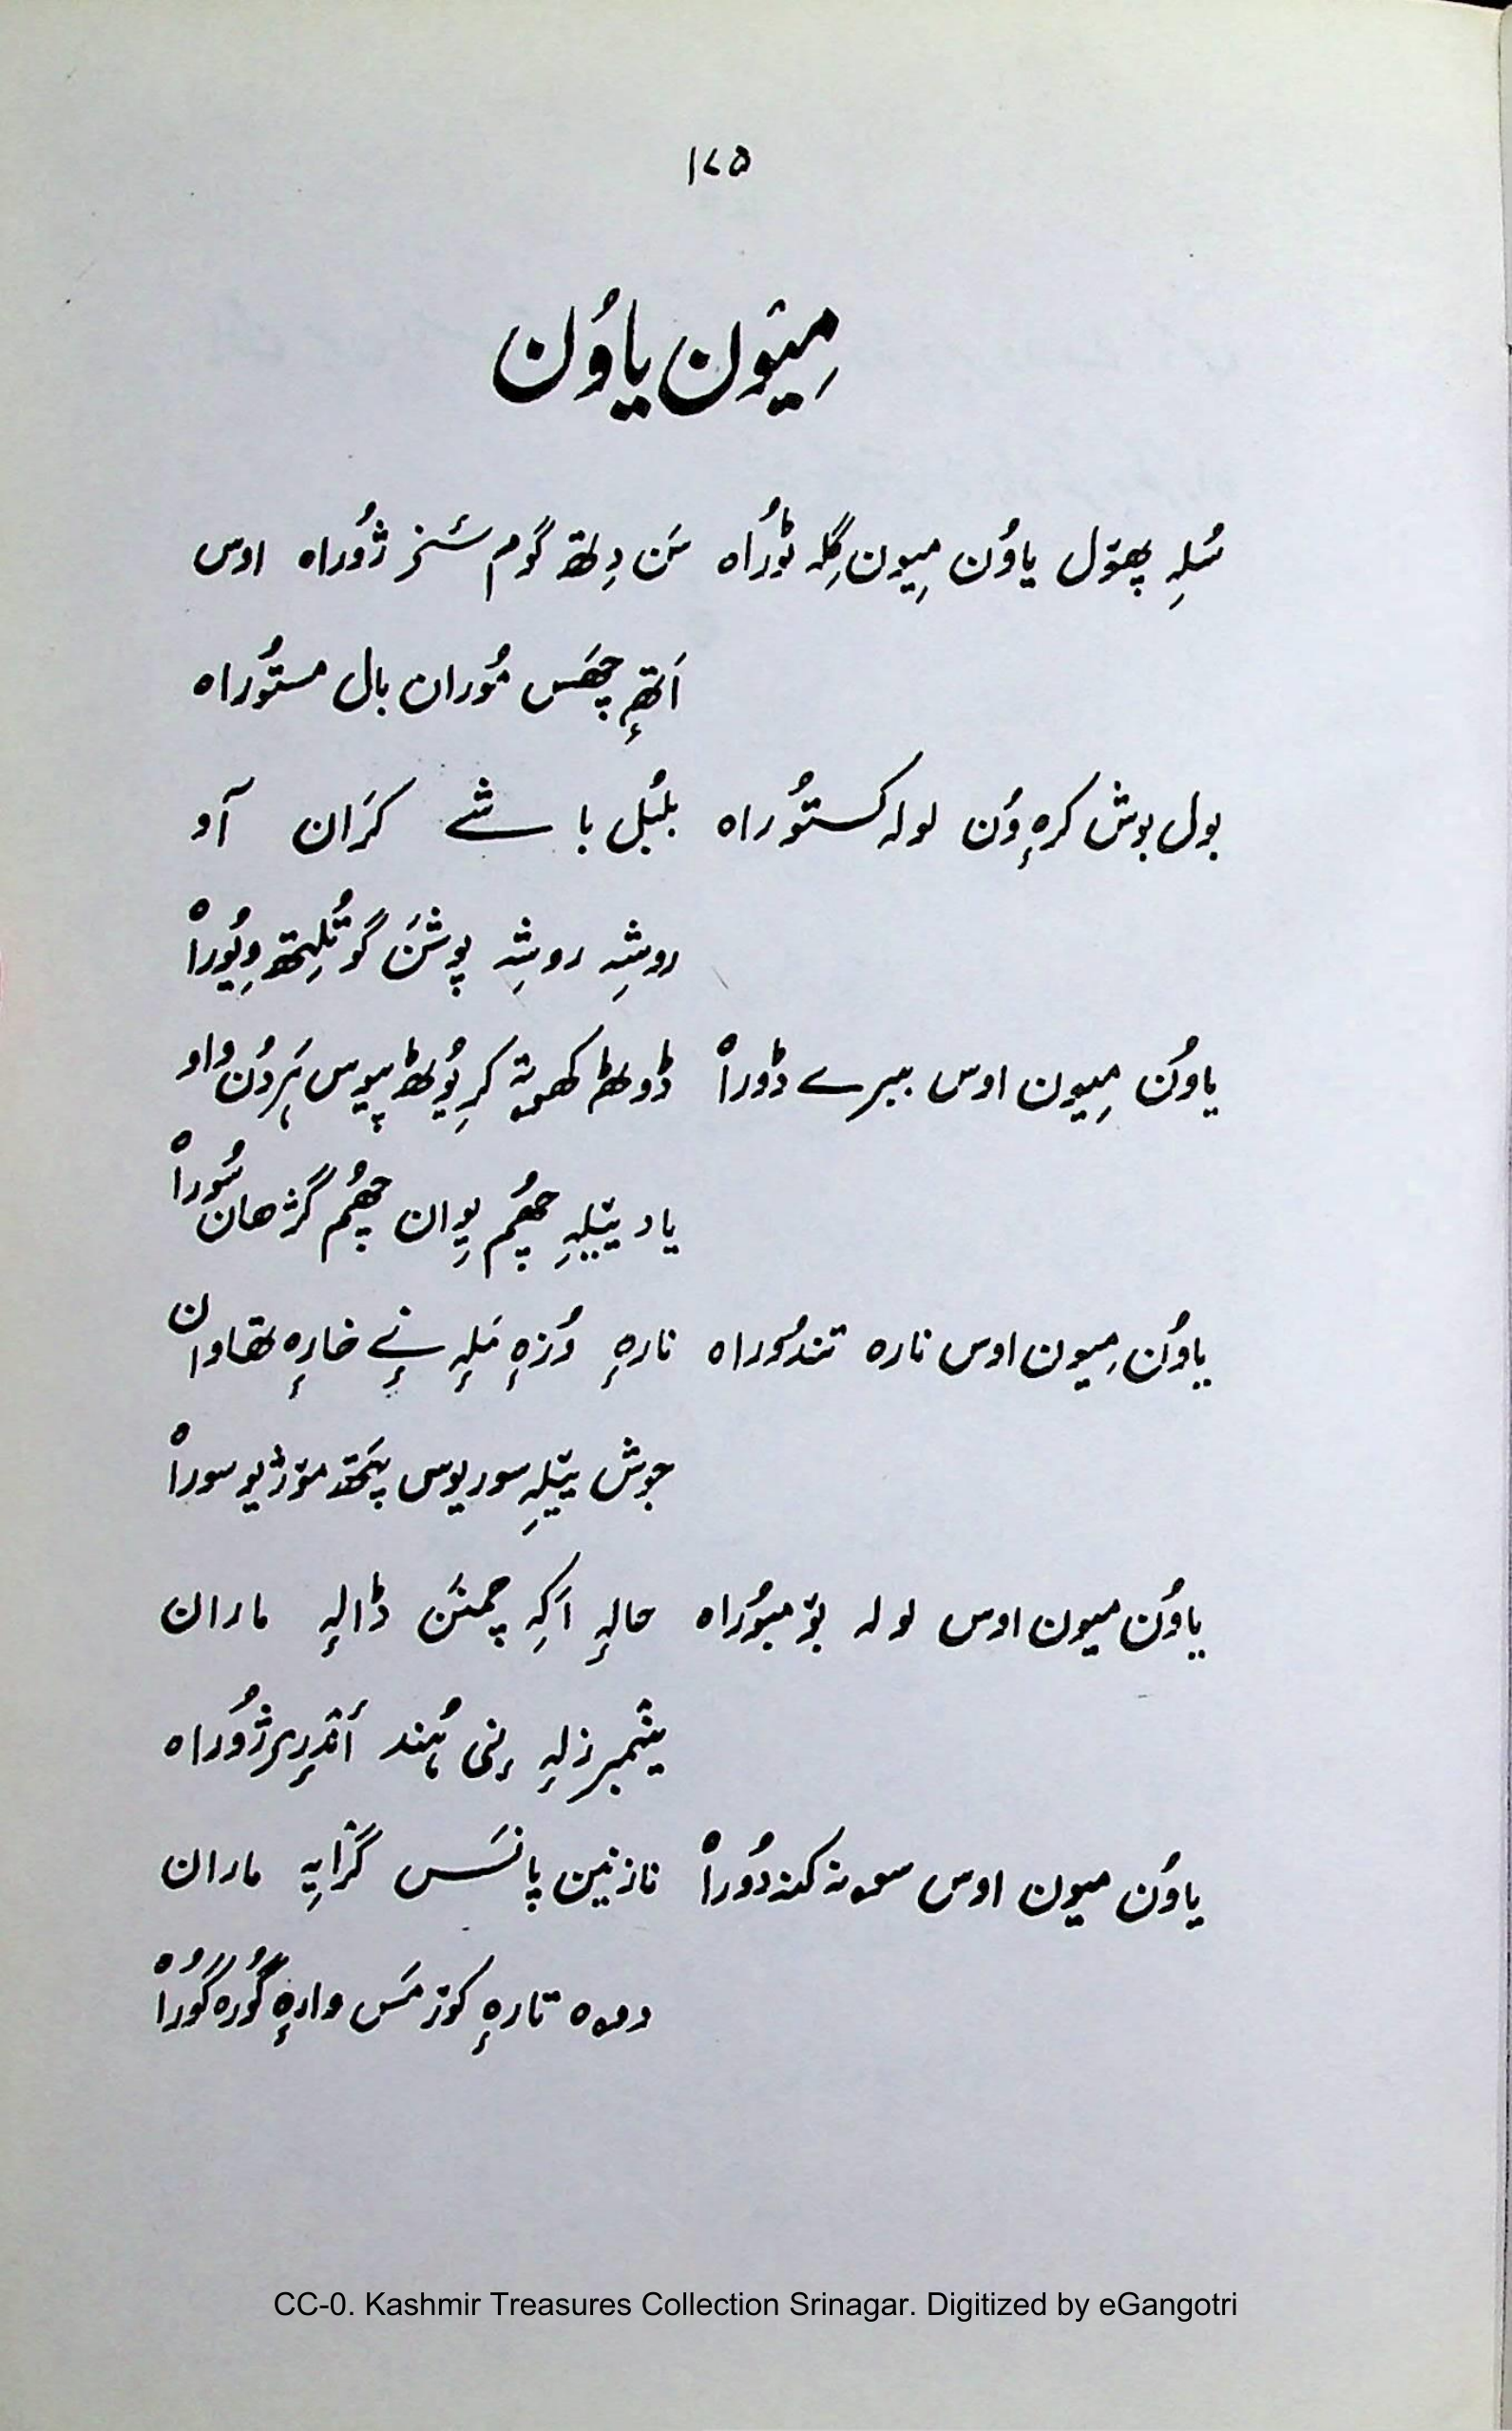 ۱۷۵
مِیٛون یاوُن
سُلِہ پھۆل یاوُن مِیون گِلہ ٹوُراہ سَن دِتھ گوم شنخر ژوُراہ اوس
اَتھۍ چھَس مُوران بال مستوُراہ
بول بوش کرہٕ وُن لولہ کستوُراہ بلبُل باشے کرَان آو
روشہِ روشہِ پوشَن گو تُلِتھ وِیوُراہ
یاوُن مِیون اوس ببرے ڈوراہ ڈوٹھ کھوتہ کرِیوُٹھ پیوس ہَردُن واو
یاد ییٚلہِ چھُم یِوان چھُم گژھان سُوراہ
یاوُن مِیون اوس نارہ تندوُراہ نارہٕ وُزہٕ مَلہٕ نٕے خارہٕ تھاوان
جوش ییٚلہِ سوریوس پَتھ مۆژیو سوراہ
یاوُن میون اوس لولہ بۆمبوُراہ حالہٕ اَکہِ چمنَن ڈالہٕ ماران
ینٛمبرزلہٕ ہنی ہُند أندرِم ژوُراہ
یاوُن میون اوس سونہ کندوُراہ نازنین پانَس گرٛایہِ ماران
دوہ تارہٕ کوژمَس وارہٕ گوُرہ گوُراہ
CC-0. Kashmir Treasures Collection Srinagar. Digitized by eGangotri